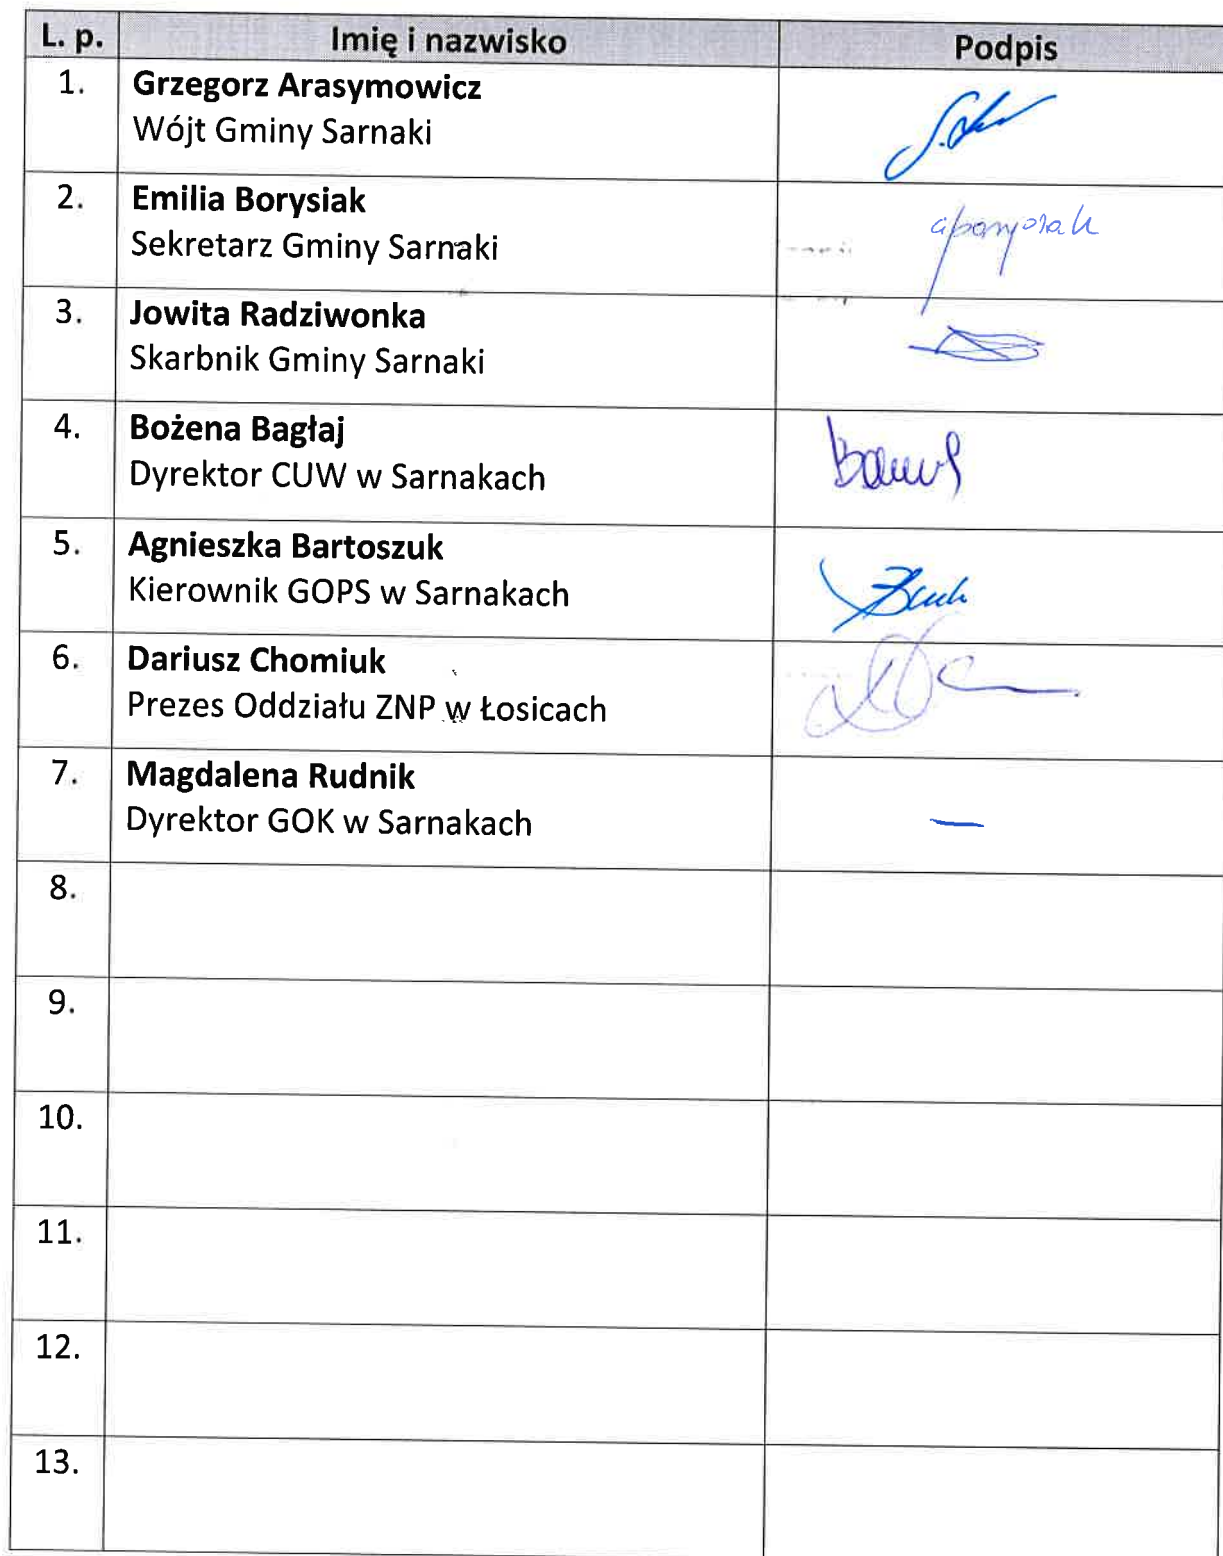 L. p. Imię i nazwisko Podpis
1. Grzegorz Arasymowicz
Wójt Gminy Sarnaki
2. Emilia Borysiak
Sekretarz Gminy Sarnaki
3. Jowita Radziwonka
Skarbnik Gminy Sarnaki
4. Bożena Bagłaj
Dyrektor CUW w Sarnakach
5. Agnieszka Bartoszuk
Kierownik GOPS w Sarnakach
6. Dariusz Chomiuk
Prezes Oddziału ZNP w Łosicach
7. Magdalena Rudnik
Dyrektor GOK w Sarnakach
—
8.
9.
10.
11.
12.
13.